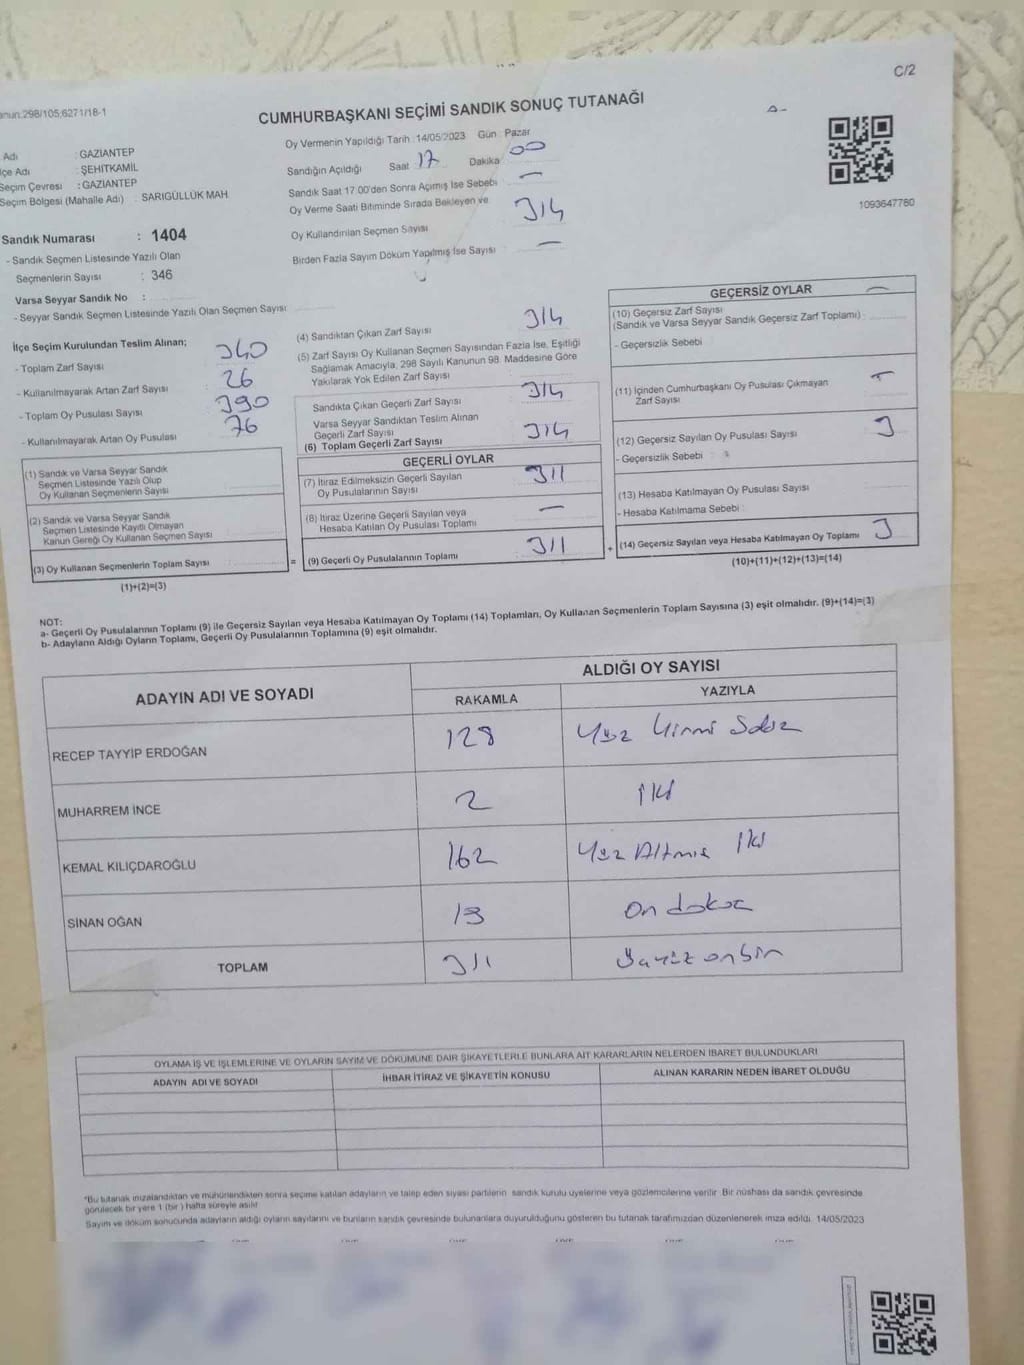 C/2
298/105;6271/18-1
CUMHURBAŞKANI SEÇİMİ SANDIK SONUÇ TUTANAĞI
A-
Adı : GAZİANTEP
İlçe Adı : ŞEHİTKAMİL
Seçim Çevresi : GAZİANTEP
Seçim Bölgesi (Mahalle Adı) : SARIGÜLLÜK MAH.
Sandık Numarası : 1404
- Sandık Seçmen Listesinde Yazılı Olan
Seçmenlerin Sayısı : 346
Varsa Seyyar Sandık No :
- Seyyar Sandık Seçmen Listesinde Yazılı Olan Seçmen Sayısı :
Oy Vermenin Yapıldığı Tarih : 14/05/2023 Gün : Pazar
Sandığın Açıldığı Saat 17 Dakika 00
Sandık Saat 17.00'den Sonra Açılmış İse Sebebi —
Oy Verme Saati Bitiminde Sırada Bekleyen ve
Oy Kullandırılan Seçmen Sayısı 314
Birden Fazla Sayım Döküm Yapılmış İse Sayısı —
1093647760
İlçe Seçim Kurulundan Teslim Alınan;
- Toplam Zarf Sayısı : 340
- Kullanılmayarak Artan Zarf Sayısı : 26
- Toplam Oy Pusulası Sayısı : 390
- Kullanılmayarak Artan Oy Pusulası : 76
(1) Sandık ve Varsa Seyyar Sandık
Seçmen Listesinde Yazılı Olup
Oy Kullanan Seçmenlerin Sayısı :
(2) Sandık ve Varsa Seyyar Sandık
Seçmen Listesinde Kayıtlı Olmayan
Kanun Gereği Oy Kullanan Seçmen Sayısı :
(3) Oy Kullanan Seçmenlerin Toplam Sayısı :
(1)+(2)=(3)
=
(4) Sandıktan Çıkan Zarf Sayısı : 314
(5) Zarf Sayısı Oy Kullanan Seçmen Sayısından Fazla İse, Eşitliği
Sağlamak Amacıyla, 298 Sayılı Kanunun 98. Maddesine Göre
Yakılarak Yok Edilen Zarf Sayısı :
Sandıkta Çıkan Geçerli Zarf Sayısı : 314
Varsa Seyyar Sandıktan Teslim Alınan
Geçerli Zarf Sayısı :
(6) Toplam Geçerli Zarf Sayısı : 314
GEÇERLİ OYLAR
(7) İtiraz Edilmeksizin Geçerli Sayılan
Oy Pusulalarının Sayısı : 311
(8) İtiraz Üzerine Geçerli Sayılan veya
Hesaba Katılan Oy Pusulası Toplamı : —
(9) Geçerli Oy Pusulalarının Toplamı : 311
+
GEÇERSİZ OYLAR
(10) Geçersiz Zarf Sayısı
(Sandık ve Varsa Seyyar Sandık Geçersiz Zarf Toplamı) : —
- Geçersizlik Sebebi
(11) İçinden Cumhurbaşkanı Oy Pusulası Çıkmayan
Zarf Sayısı : —
(12) Geçersiz Sayılan Oy Pusulası Sayısı : 3
- Geçersizlik Sebebi :
(13) Hesaba Katılmayan Oy Pusulası Sayısı :
- Hesaba Katılmama Sebebi :
(14) Geçersiz Sayılan veya Hesaba Katılmayan Oy Toplamı : 3
(10)+(11)+(12)+(13)=(14)
NOT:
a- Geçerli Oy Pusulalarının Toplamı (9) ile Geçersiz Sayılan veya Hesaba Katılmayan Oy Toplamı (14) Toplamları, Oy Kullanan Seçmenlerin Toplam Sayısına (3) eşit olmalıdır. (9)+(14)=(3)
b- Adayların Aldığı Oyların Toplamı, Geçerli Oy Pusulalarının Toplamına (9) eşit olmalıdır.
ADAYIN ADI VE SOYADI
ALDIĞI OY SAYISI
RAKAMLA YAZIYLA
RECEP TAYYİP ERDOĞAN 128 Yüz Yirmi Sekiz
MUHARREM İNCE 2 iki
KEMAL KILIÇDAROĞLU 162 Yüz Altmış iki
SİNAN OĞAN 19 On dokuz
TOPLAM 311 üçyüz onbir
OYLAMA İŞ VE İŞLEMLERİNE VE OYLARIN SAYIM VE DÖKÜMÜNE DAİR ŞİKAYETLERLE BUNLARA AİT KARARLARIN NELERDEN İBARET BULUNDUKLARI
ADAYIN ADI VE SOYADI İHBAR İTİRAZ VE ŞİKAYETİN KONUSU ALINAN KARARIN NEDEN İBARET OLDUĞU
*Bu tutanak imzalandıktan ve mühürlendikten sonra seçime katılan adayların ve talep eden siyasi partilerin sandık kurulu üyelerine veya gözlemcilerine verilir. Bir nüshası da sandık çevresinde
görülecek bir yere 1 (bir) hafta süreyle asılır.
Sayım ve döküm sonucunda adayların aldığı oyların sayılarını ve bunların sandık çevresinde bulunanlara duyurulduğunu gösteren bu tutanak tarafımızdan düzenlenerek imza edildi. 14/05/2023